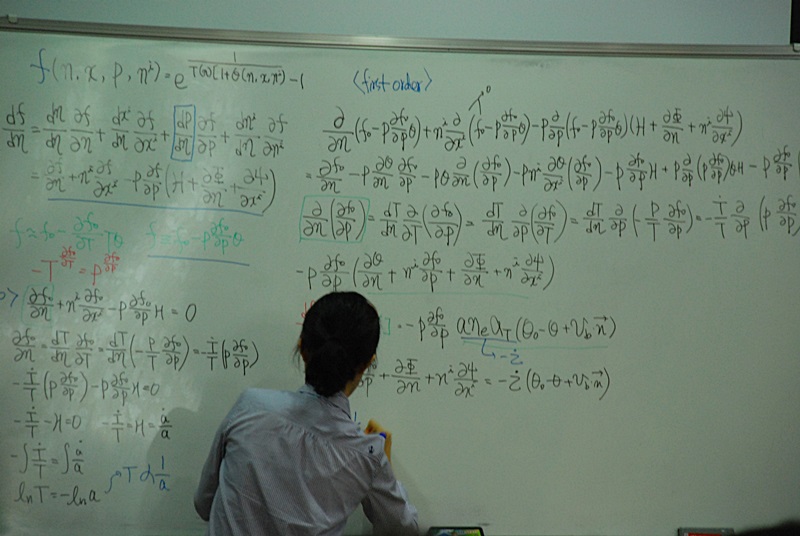 f(η, x, p, n^i) = e^{1/(T(η)[1+θ(η, x, n^i)])} - 1
df/dη = dη/dη ∂f/∂η + dx^i/dη ∂f/∂x^i + dp/dη ∂f/∂p + dn^i/dη ∂f/∂n^i
= ∂f/∂η + n^i ∂f/∂x^i - p ∂f/∂p (H + ∂Φ/∂η + ∂Ψ/∂x^i)
f ≈ f₀ - ∂f₀/∂T Tθ f = f₀ - p ∂f₀/∂p θ
-T ∂f₀/∂T = p ∂f₀/∂p
∂f₀/∂η + n^i ∂f₀/∂x^i - p ∂f₀/∂p H = 0
∂f₀/∂η = dT/dη ∂f₀/∂T = dT/dη (-p/T ∂f₀/∂p) = -Ṫ/T (p ∂f₀/∂p)
-Ṫ/T (p ∂f₀/∂p) - p ∂f₀/∂p H = 0
-Ṫ/T - H = 0 -Ṫ/T = H = ȧ/a
-∫ Ṫ/T = ∫ ȧ/a
ln T = -ln a T ∝ 1/a
<first order>
0
∂/∂η (f₀ - p ∂f₀/∂p θ) + n^i ∂/∂x^i (f₀ - p ∂f₀/∂p θ) - p ∂/∂p (f₀ - p ∂f₀/∂p θ)(H + ∂Φ/∂η + n^i ∂Ψ/∂x^i)
= ∂f₀/∂η - p ∂θ/∂η ∂f₀/∂p - pθ ∂/∂η (∂f₀/∂p) - pn^i ∂θ/∂x^i (∂f₀/∂p) - p ∂f₀/∂p H + p ∂/∂p (p ∂f₀/∂p) θH - p ∂f₀
∂/∂η (∂f₀/∂p) = dT/dη ∂/∂T (∂f₀/∂p) = dT/dη ∂/∂p (∂f₀/∂T) = dT/dη ∂/∂p (-p/T ∂f₀/∂p) = -Ṫ/T ∂/∂p (p ∂f₀/∂p)
-p ∂f₀/∂p (∂θ/∂η + n^i ∂f₀/∂p + ∂Φ/∂η + n^i ∂Ψ/∂x^i)
= -p ∂f₀/∂p a n_e σ_T (θ₀ - θ + v_b·n)
-τ̇
+ ∂Φ/∂η + n^i ∂Ψ/∂x^i = -τ̇ (θ₀ - θ + v_b·n)